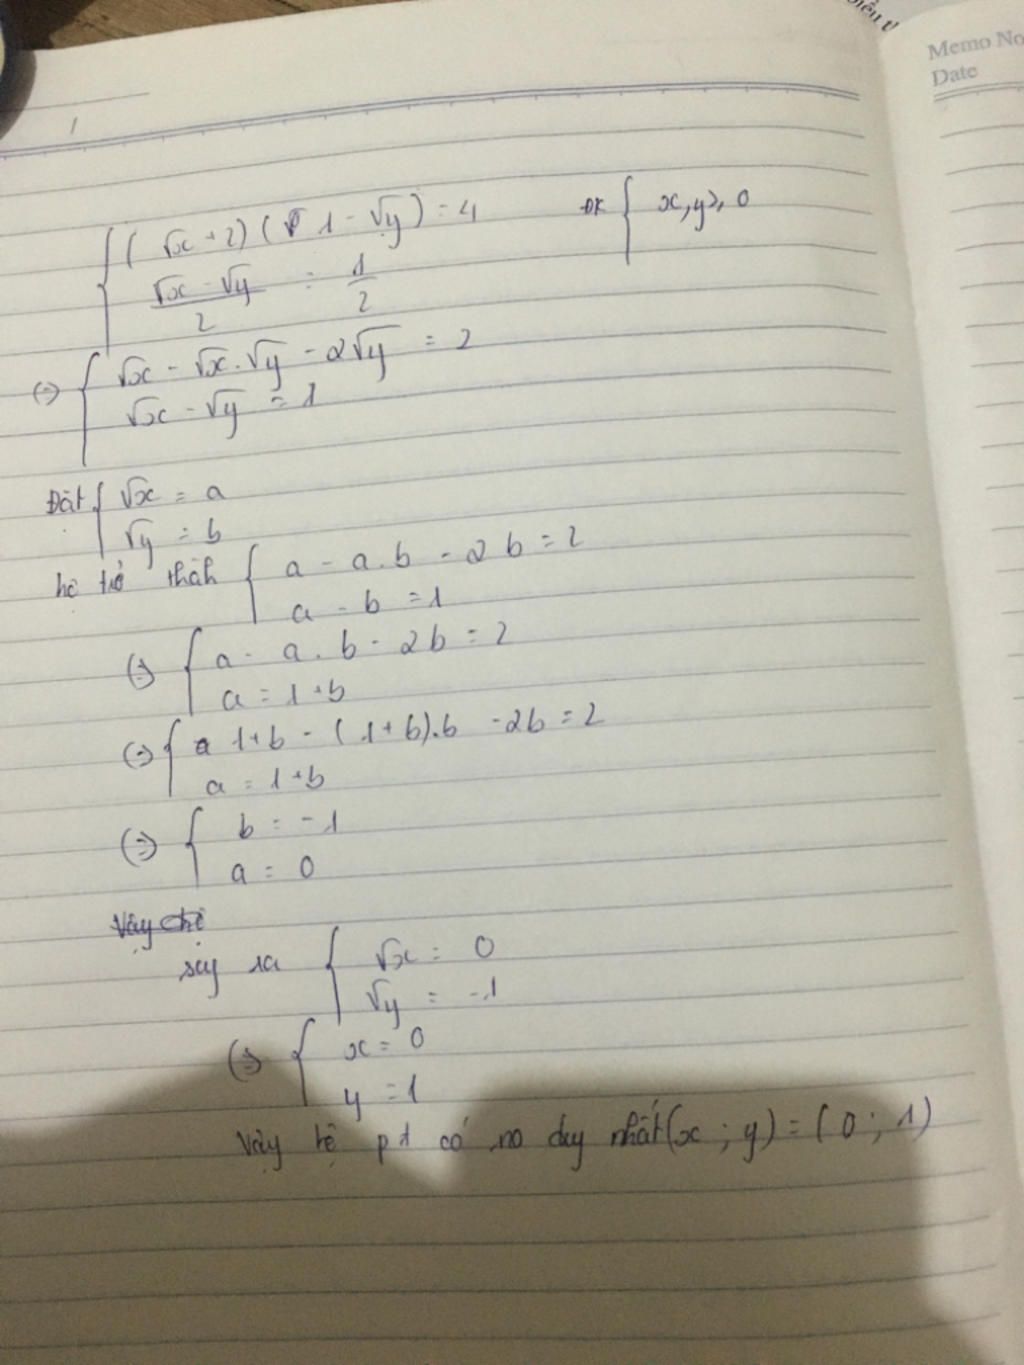 Memo No
Date
{ (√x + 2)(1 - √y) = 4 ĐK { x, y ≥ 0
(√x - √y)/2 = 1/2
(=) { √x - √x.√y - 2√y = 2
√x - √y = 1
Đặt { √x = a
√y = b
hệ trở thành { a - a.b - 2b = 2
a - b = 1
(=) { a - a.b - 2b = 2
a = 1+b
(=) { 1+b - (1+b).b - 2b = 2
a = 1+b
(=) { b = -1
a = 0
suy ra { √x = 0
√y = -1
(=) { x = 0
y = 1
Vậy hệ pt có no duy nhất (x ; y) = (0 ; 1)